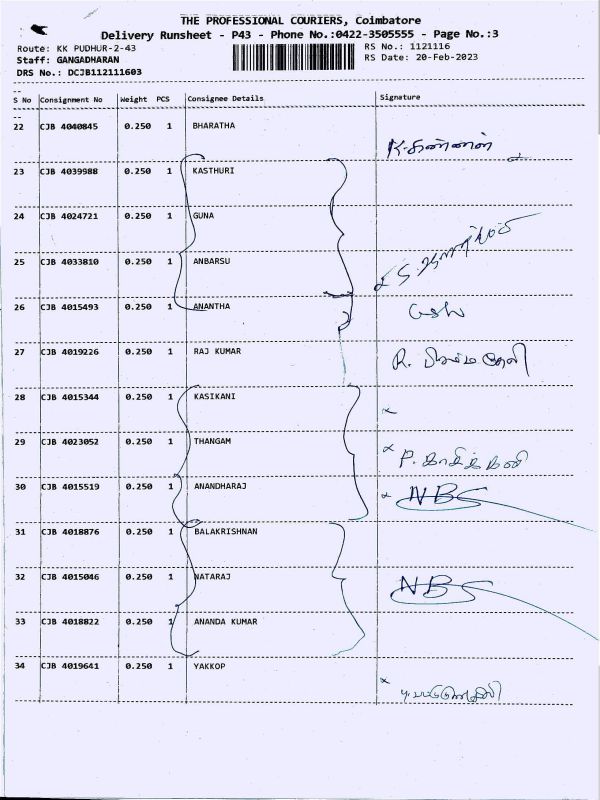 THE PROFESSIONAL COURIERS, Coimbatore
Delivery Runsheet - P43 - Phone No.:0422-3505555 - Page No.:3
Route: KK PUDHUR-2-43 RS No.: 1121116
Staff: GANGADHARAN RS Date: 20-Feb-2023
DRS No.: DCJB112111603
S No Consignment No Weight PCS Consignee Details Signature
22 CJB 4040845 0.250 1 BHARATHA
K. கண்ணன்
23 CJB 4039988 0.250 1 KASTHURI
24 CJB 4024721 0.250 1 GUNA
25 CJB 4033810 0.250 1 ANBARSU
26 CJB 4015493 0.250 1 ANANTHA
27 CJB 4019226 0.250 1 RAJ KUMAR
R.
28 CJB 4015344 0.250 1 KASIKANI
29 CJB 4023052 0.250 1 THANGAM
P. காசிக்கனி
30 CJB 4015519 0.250 1 ANANDHARAJ NBS
31 CJB 4018876 0.250 1 BALAKRISHNAN
32 CJB 4015046 0.250 1 NATARAJ NBS
33 CJB 4018822 0.250 1 ANANDA KUMAR
34 CJB 4019641 0.250 1 YAKKOP